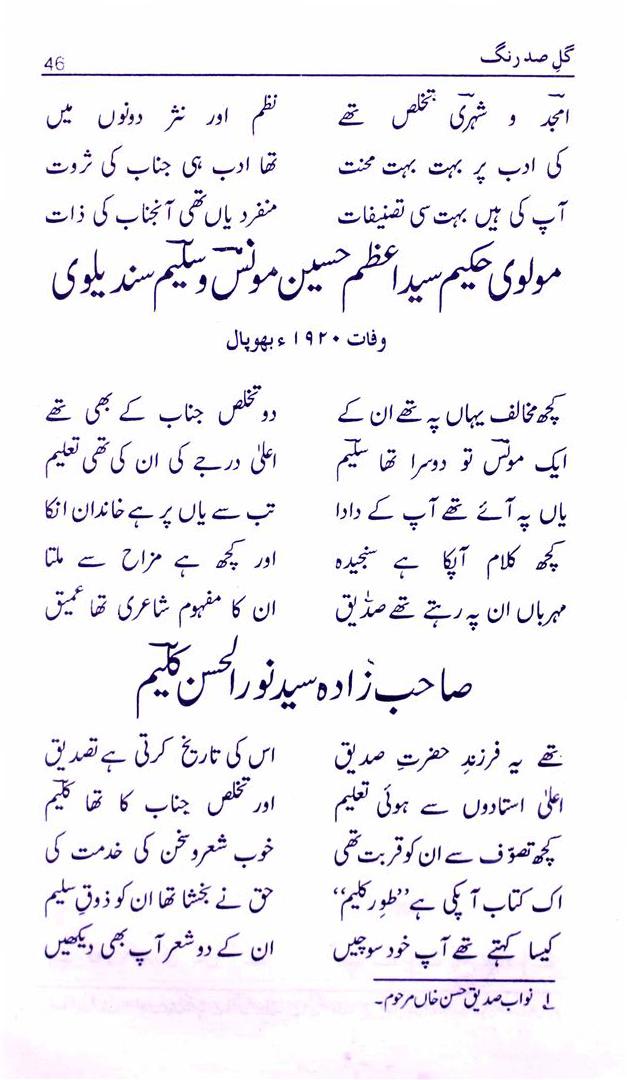 گلِ صد رنگ 46
امجدؔ و شہریؔ تخلص تھے نظم اور نثر دونوں میں
کی ادب پر بہت بہت محنت تھا ادب ہی جناب کی ثروت
آپ کی ہیں بہت سی تصنیفات منفرد یاں تھی آنجناب کی ذات
مولوی حکیم سید اعظم حسین مونسؔ و سلیمؔ سندیلوی
وفات ۱۹۲۰ء بھوپال
کچھ مخالف یہاں پہ تھے ان کے دو تخلص جناب کے بھی تھے
ایک مونسؔ تو دوسرا تھا سلیمؔ اعلیٰ درجے کی ان کی تھی تعلیم
یاں پہ آئے تھے آپ کے دادا تب سے یاں پر ہے خاندان انکا
کچھ کلام آپکا ہے سنجیدہ اور کچھ ہے مزاح سے ملتا
مہرباں ان پہ رہتے تھے صدیق ان کا مفہوم شاعری تھا عمیق
صاحب زادہ سید نور الحسن کلیمؔ
تھے یہ فرزندِ حضرتِ صدیق اس کی تاریخ کرتی ہے تصدیق
اعلیٰ استادوں سے ہوئی تعلیم اور تخلص جناب کا تھا کلیمؔ
کچھ تصوّف سے ان کو قربت تھی خوب شعر و سخن کی خدمت کی
اک کتاب آپکی ہے ”طورِ کلیم“ حق نے بخشا تھا ان کو ذوقِ سلیم
کیسا کہتے تھے آپ خود سوچیں ان کے دو شعر آپ بھی دیکھیں
۱؎ نواب صدیق حسن خاں مرحوم۔